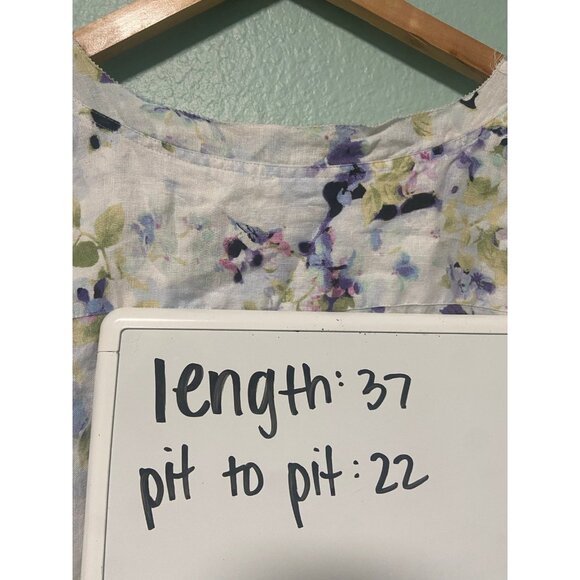 length: 37
pit to pit: 22